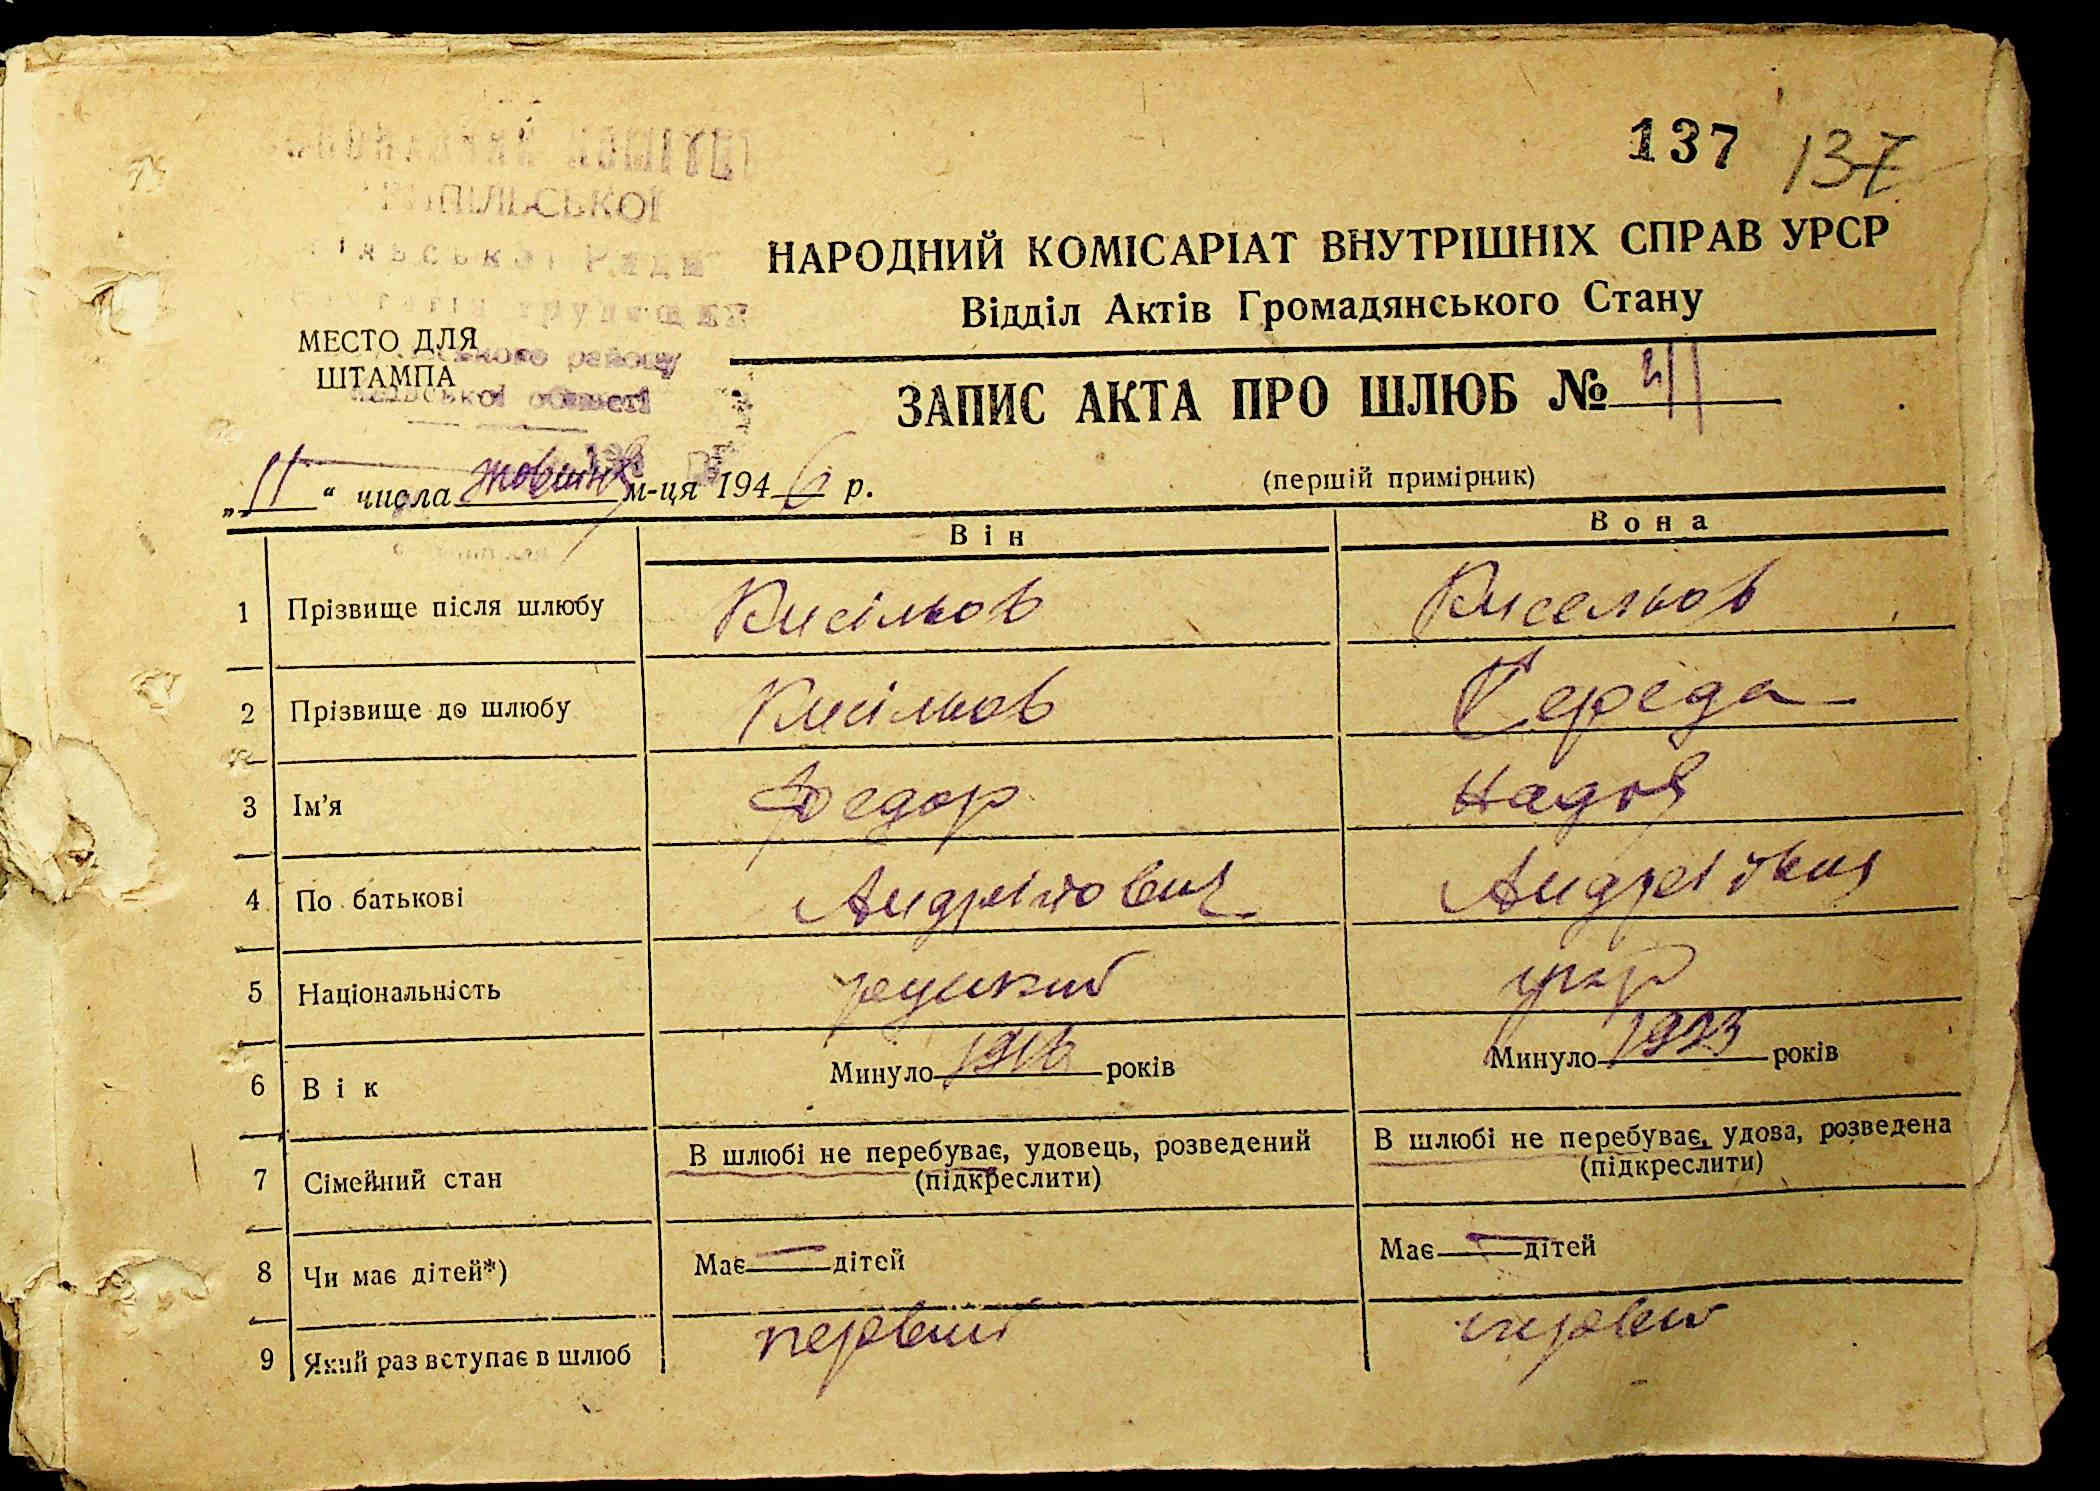 137 137
НАРОДНИЙ КОМІСАРІАТ ВНУТРІШНІХ СПРАВ УРСР
Відділ Актів Громадянського Стану
МЕСТО ДЛЯ
ШТАМПА
району
області
ЗАПИС АКТА ПРО ШЛЮБ №
(першій примірник)
„11“ числа жовтня м-ця 1946 р.
Він Вона
1 Прізвище після шлюбу Кисільов Кисельов
2 Прізвище до шлюбу Кисільов Середа
3 Ім'я Федор Надія
4 По батькові
5 Національність укр
6 Вік Минуло 1916 років Минуло 1923 років
7 Сімейний стан В шлюбі не перебуває, удовець, розведений В шлюбі не перебуває, удова, розведена
(підкреслити) (підкреслити)
8 Чи має дітей*) Має — дітей Має — дітей
9 Який раз вступає в шлюб первий